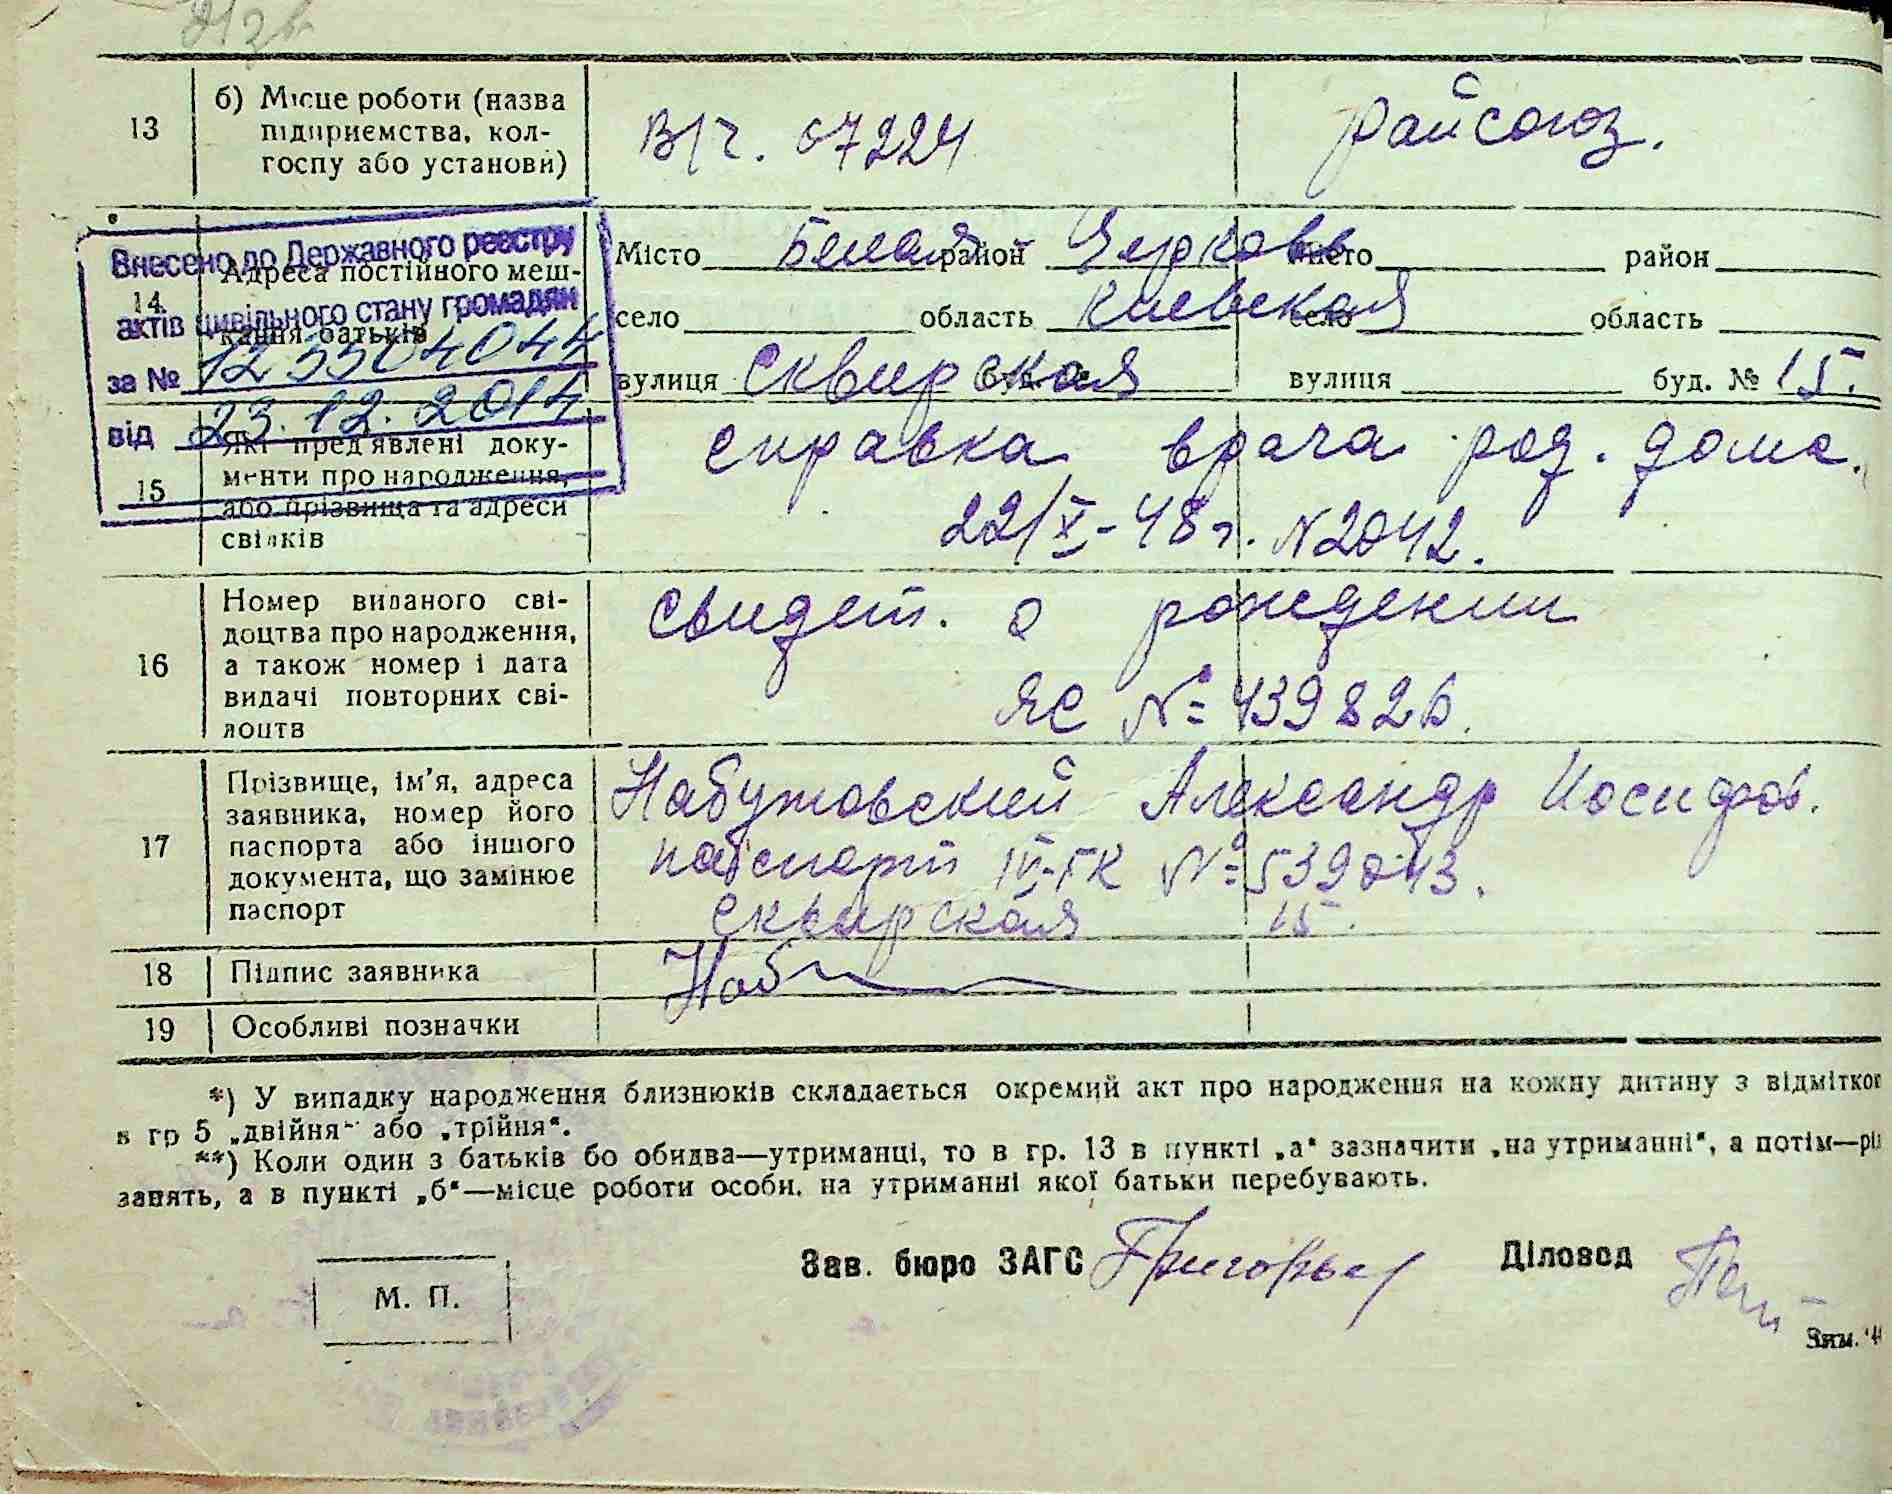 13
б) Місце роботи (назва
підприємства, кол-
госпу або установи)
В/ч. 07224
райсоюз.
Внесено до Державного реєстру
актів цивільного стану громадян
за № 123304044
від 23.12.2014
14
Адреса постійного меш-
кання батьків
Місто Белая район Церковь місто район
село область Киевская село область
вулиця Сквирская буд. № вулиця буд. № 15.
15
Які пред'явлені доку-
менти про народження,
або прізвища та адреси
свідків
справка врача род. дома.
22/X-48 г. N 2042.
16
Номер виданого сві-
доцтва про народження,
а також номер і дата
видачі повторних сві-
доцтв
свидет. о рождении
ЯС № 439826.
17
Прізвище, ім'я, адреса
заявника, номер його
паспорта або іншого
документа, що замінює
паспорт
Набутовский Александр Иосифов.
паспорт IV-ГК № 539043.
Сквирская 15.
18
Підпис заявника
Наб
19
Особливі позначки
*) У випадку народження близнюків складається окремий акт про народження на кожну дитину з відміткою
в гр 5 „двійня“ або „трійня“.
**) Коли один з батьків бо обидва—утриманці, то в гр. 13 в пункті „а“ зазначити „на утриманні“, а потім—рі
занять, а в пункті „б“—місце роботи особи, на утриманні якої батьки перебувають.
Зав. бюро ЗАГС Григорьев
Діловод
М. П.
Зам.